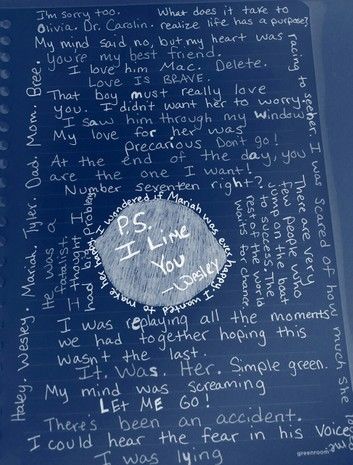 I'm sorry too. What does it take to
Olivia. Dr. Carolin. realize life has a purpose?
My mind said no, but my heart was
racing to see her. I was scared of how much she
You're my best friend.
I love him Mac. Delete.
Love IS BRAVE.
That boy must really love
you. I didn't want her to worry.
I saw him through my window
My love for her was
precarious Don't go!
At the end of the day, you
are the one I want!
Number seventeen right?
There are very
few people who
jump on the boat
to access. The
rest of the world
waits for change
He was a
fatalist. I
I thought I
had big problems
I wondered if Mariah was ever happy. I wanted to make her happy.
P.S.
I Lime
You
-Wesley
I was replaying all the moments
we had together hoping this
wasn't the last.
It. Was. Her. Simple green.
My mind was screaming
LET ME GO!
There's been an accident.
I could hear the fear in his voice
I was lying
Haley. Wesley. Mariah. Tyler. Dad. Mom. Bree.
me
greenroom